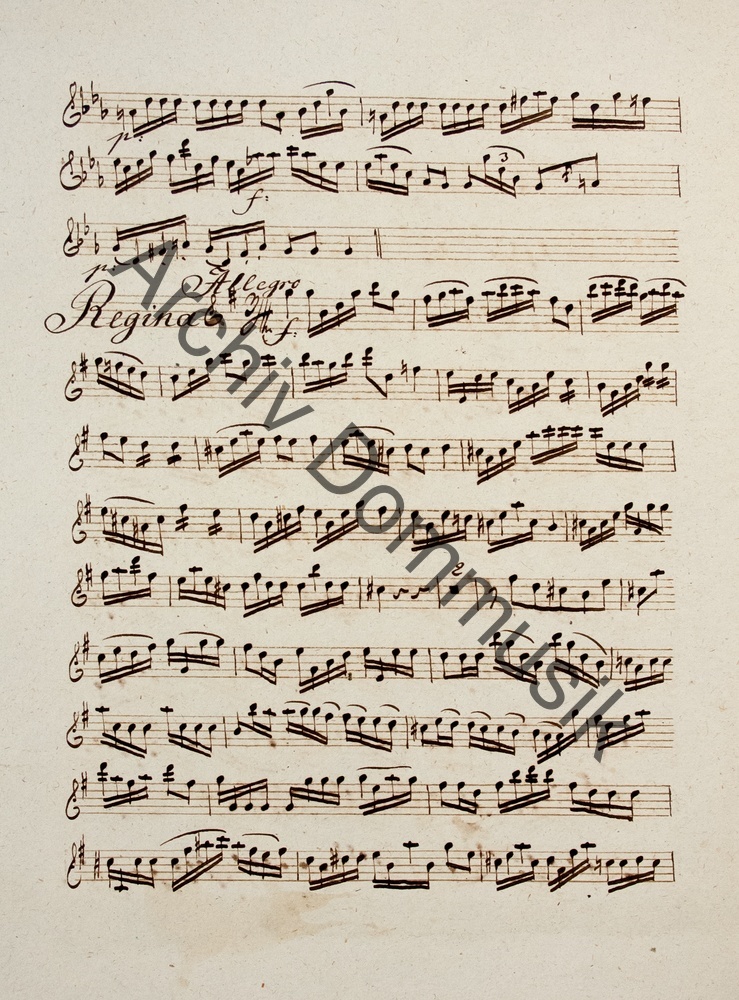 p:
f:
3
p:
Allegro
Regina
f:
2
Archiv Dommusik